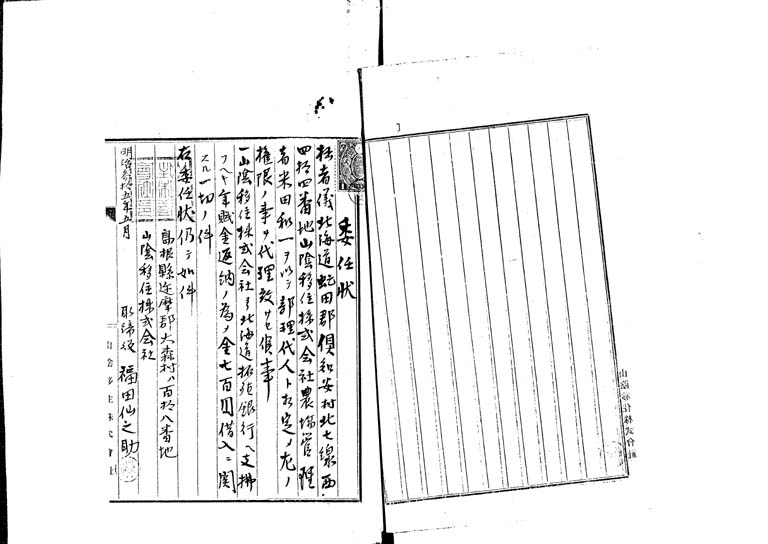 委任状
拙者儀北海道虻田郡倶知安村北七線西
四拾四番地山陰移住株式会社農場管理
者米田和一ヲ以テ部理代人ト相定メ左ノ
権限ノ事ヲ代理致サセ候事
一山陰移住株式会社ヨリ北海道拓殖銀行ヘ支拂
フヘキ年賦金返納ノ為メ金七百円借入ニ関
スル一切ノ件
右委任状仍テ如件
島根縣迩摩郡大森村 百拾八番地
山陰移住株式会社
取締役 福田仙之助
明治 拾五年五月
山陰移住株式會社